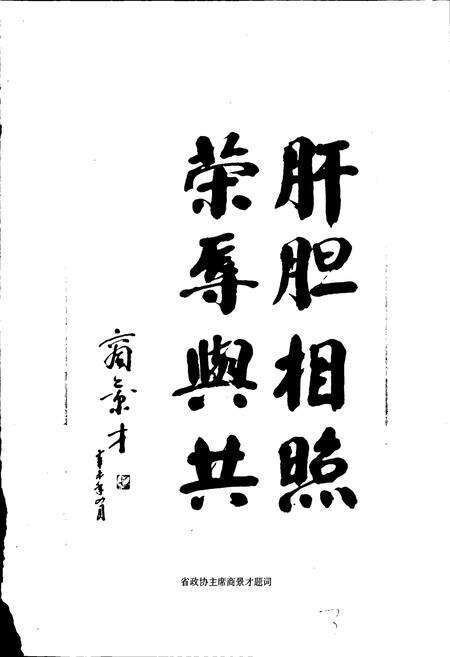 肝胆相照
荣辱與共
商景才
辛未年八月
省政协主席商景才题词